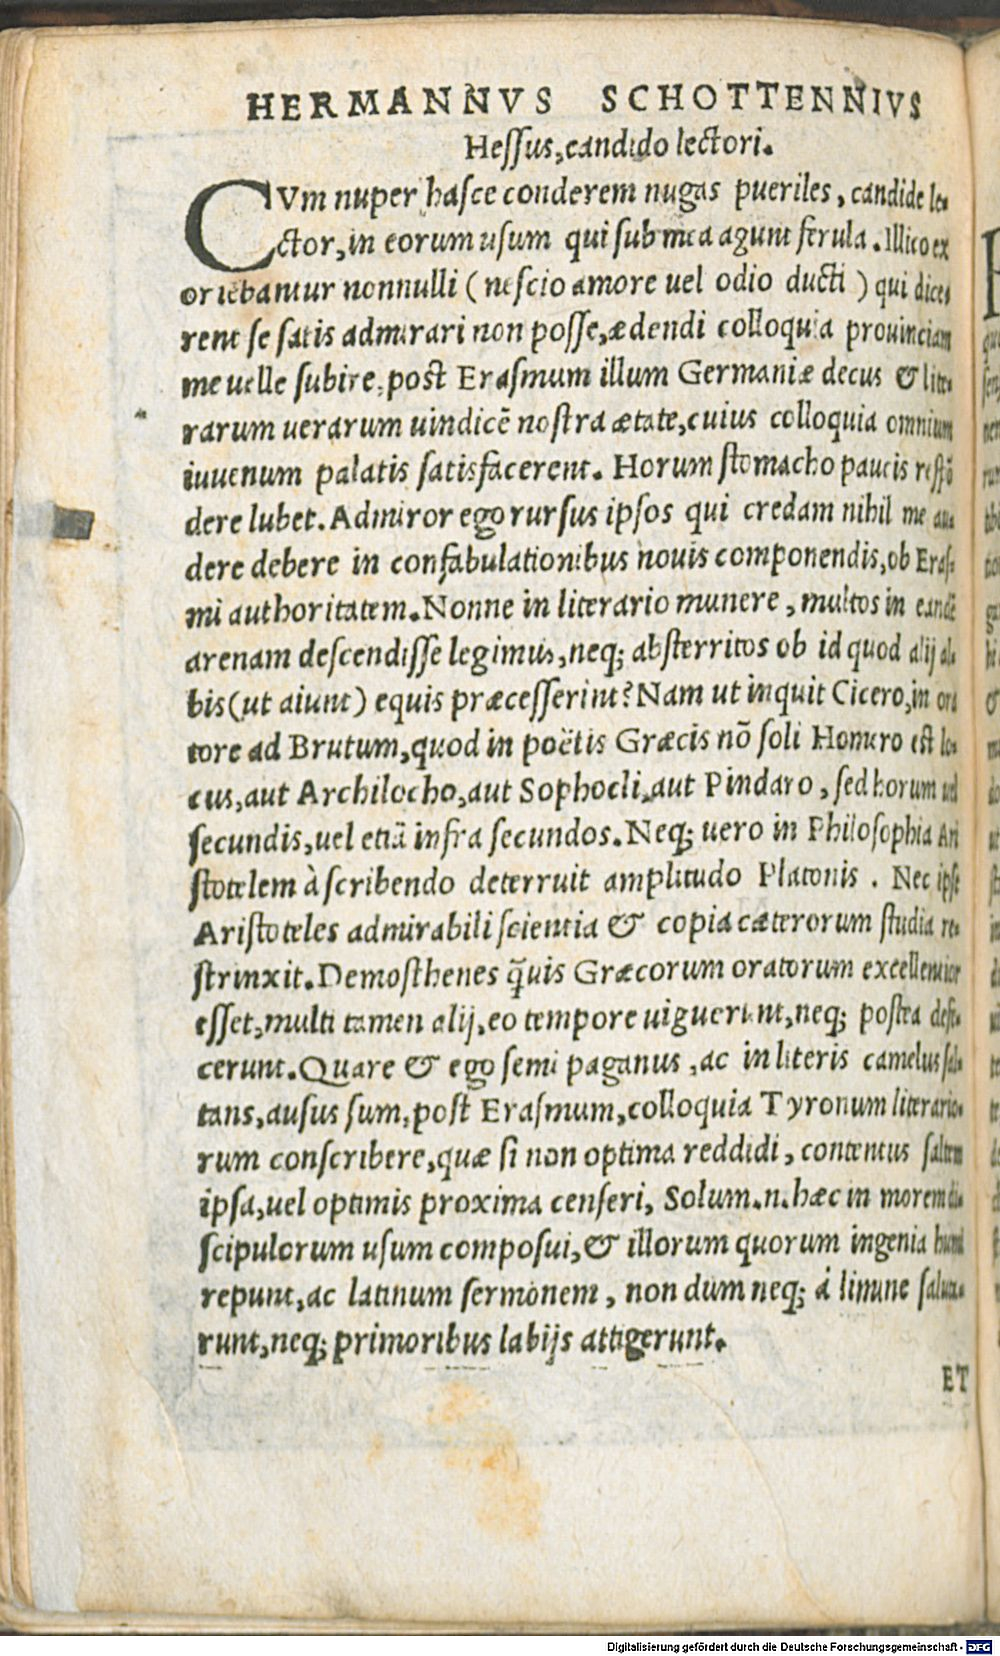 HERMANNVS SCHOTTENNIVS
Hessus, candido lectori.
CVm nuper hasce conderem nugas pueriles, candide le-
ctor, in eorum usum qui sub mea agunt ferula. Illico ex
oriebantur nonnulli (nescio amore uel odio ducti) qui dice-
rent se satis admirari non posse, ædendi colloquia prouinciam
me uelle subire, post Erasmum illum Germaniæ decus & lite-
rarum uerarum uindicẽ nostra ætate, cuius colloquia omnium
iuuenum palatis satisfacerent. Horum stomacho paucis respõ
dere lubet. Admiror ego rursus ipsos qui credam nihil me au-
dere debere in confabulationibus nouis componendis, ob Eras-
mi authoritatem. Nonne in literario munere, multos in eandẽ
arenam descendisse legimus, neq; absterritos ob id quod alij al-
bis (ut aiunt) equis præcesserint? Nam ut inquit Cicero, in ora
tore ad Brutum, quod in poëtis Græcis nõ soli Homero est lo-
cus, aut Archilocho, aut Sophocli, aut Pindaro, sed horum uel
secundis, uel etiã infra secundos. Neq; uero in Philosophia Ari
stotelem à scribendo deterruit amplitudo Platonis. Nec ipse
Aristoteles admirabili scientia & copia cæterorum studia re-
strinxit. Demosthenes q̃uis Græcorum oratorum excellentior
esset, multi tamen alij, eo tempore uiguerunt, neq; postea defe-
cerunt. Quare & ego semi paganus, ac in literis camelus sal-
tans, ausus sum, post Erasmum, colloquia Tyronum literario-
rum conscribere, quæ si non optima reddidi, contentus saltem
ipsa, uel optimis proxima censeri, Solum .n. hæc in morem di-
scipulorum usum composui, & illorum quorum ingenia humi
repunt, ac latinum sermonem, non dum neq; à limine saluta-
runt, neq; primoribus labijs attigerunt.
ET
Digitalisierung gefördert durch die Deutsche Forschungsgemeinschaft - DFG